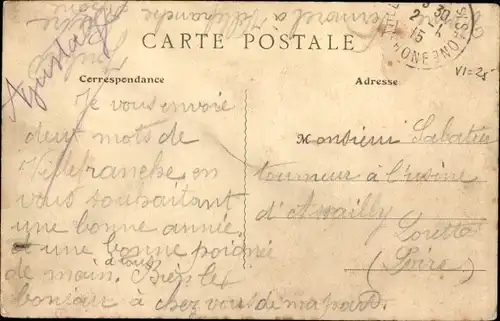 à Villefranche
CARTE POSTALE
Correspondance
Adresse
VI=25
Je vous envoie
deux mots de
Villefranche en
vous souhaitant
une bonne année
et une bonne poignée
de main à tous. Bien le
bonjour à chez vous de ma part.
Monsieur Sabatier
tourneur à l'usine
d'Assailly
Lorette
(Loire)